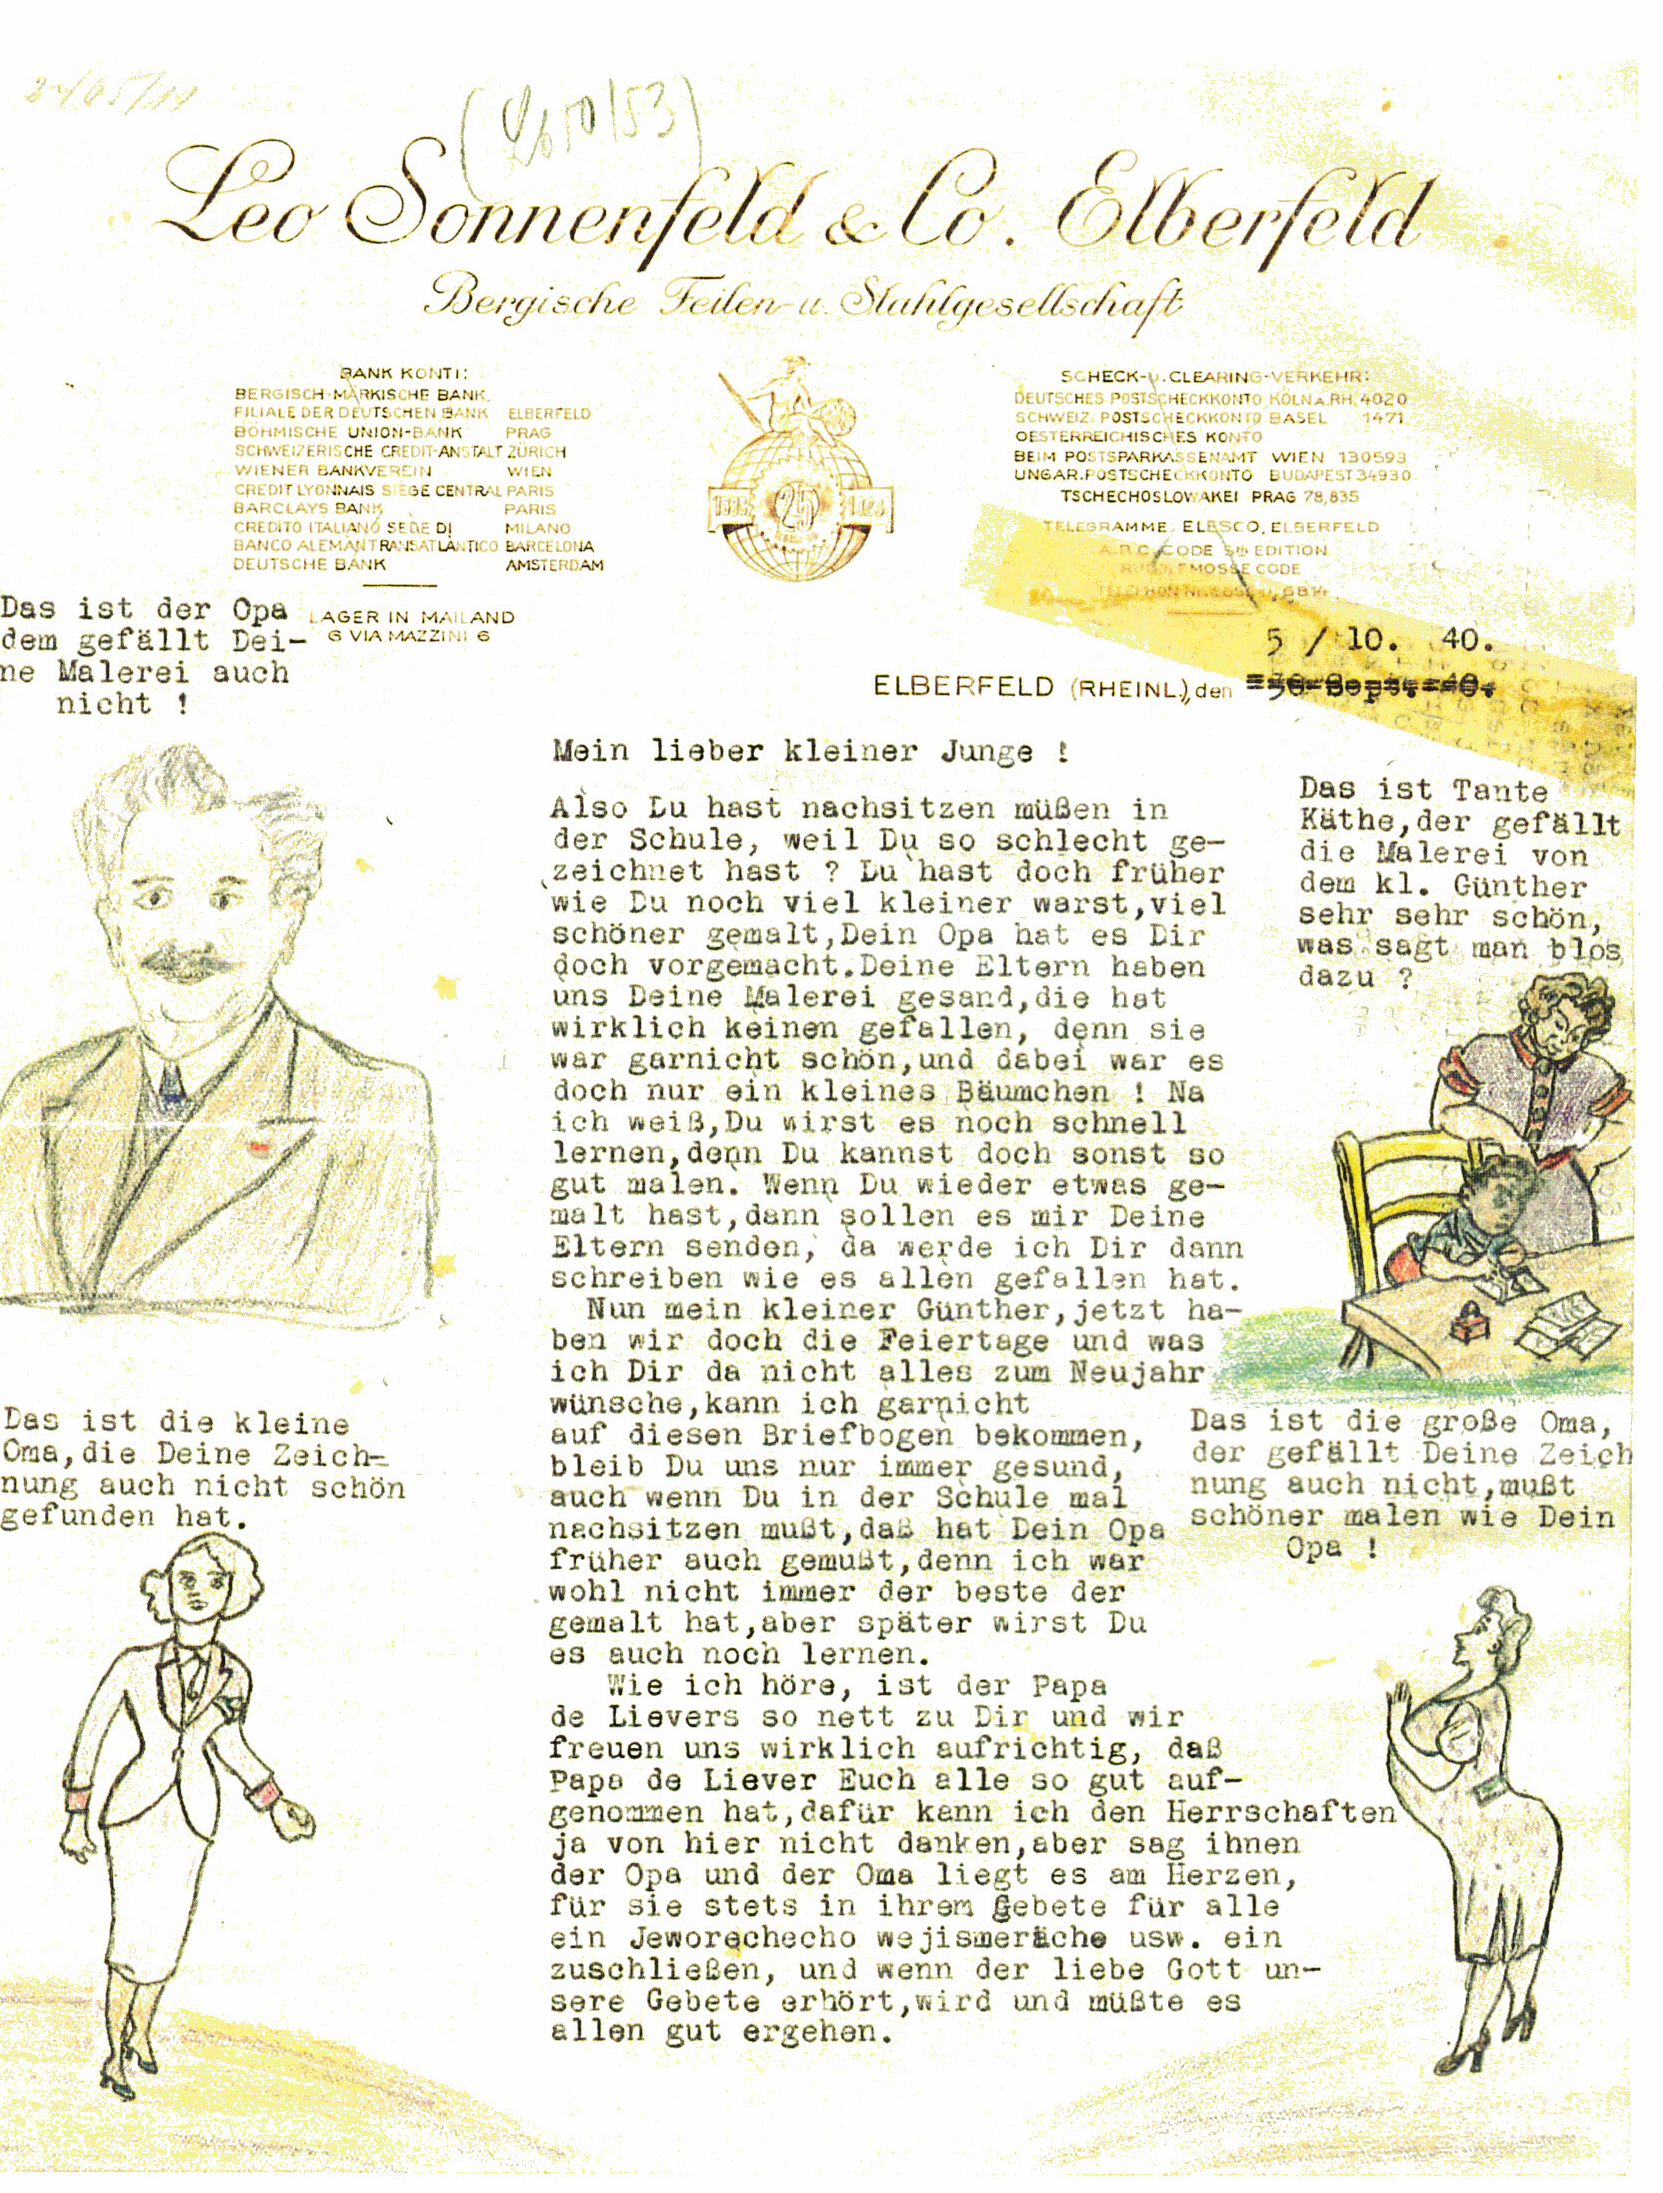 Leo Sonnenfeld & Co. Elberfeld
Bergische Feilen- u. Stahlgesellschaft
BANK KONTI:
BERGISCH-MÄRKISCHE BANK.
FILIALE DER DEUTSCHEN BANK ELBERFELD
BÖHMISCHE UNION-BANK PRAG
SCHWEIZERISCHE CREDIT-ANSTALT ZÜRICH
WIENER BANKVEREIN WIEN
CREDIT LYONNAIS SIEGE CENTRAL PARIS
BARCLAYS BANK PARIS
CREDITO ITALIANO SEDE DI MILANO
BANCO ALEMAN TRANSATLÁNTICO BARCELONA
DEUTSCHE BANK AMSTERDAM
LAGER IN MAILAND
6 VIA MAZZINI 6
25
SCHECK-U. CLEARING-VERKEHR:
DEUTSCHES POSTSCHECKKONTO KÖLN A.RH. 4020
SCHWEIZ. POSTSCHECKKONTO BASEL 1471
OESTERREICHISCHES KONTO
BEIM POSTSPARKASSENAMT WIEN 130593
UNGAR. POSTSCHECKKONTO BUDAPEST 34930
TSCHECHOSLOWAKEI PRAG 78,835
TELEGRAMME: ELESCO, ELBERFELD
A.B.C. CODE 5th EDITION
RUDOLF MOSSE CODE
5 / 10. 40.
ELBERFELD (RHEINL.), den
Das ist der Opa
dem gefällt Dei-
ne Malerei auch
nicht !
Mein lieber kleiner Junge !
Also Du hast nachsitzen müßen in
der Schule, weil Du so schlecht ge-
zeichnet hast ? Du hast doch früher
wie Du noch viel kleiner warst,viel
schöner gemalt,Dein Opa hat es Dir
doch vorgemacht.Deine Eltern haben
uns Deine Malerei gesand,die hat
wirklich keinen gefallen, denn sie
war garnicht schön,und dabei war es
doch nur ein kleines Bäumchen ! Na
ich weiß,Du wirst es noch schnell
lernen,denn Du kannst doch sonst so
gut malen. Wenn Du wieder etwas ge-
malt hast,dann sollen es mir Deine
Eltern senden, da werde ich Dir dann
schreiben wie es allen gefallen hat.
Nun mein kleiner Günther,jetzt ha-
ben wir doch die Feiertage und was
ich Dir da nicht alles zum Neujahr
wünsche,kann ich garnicht
auf diesen Briefbogen bekommen,
bleib Du uns nur immer gesund,
auch wenn Du in der Schule mal
nachsitzen mußt,daß hat Dein Opa
früher auch gemußt,denn ich war
wohl nicht immer der beste der
gemalt hat,aber später wirst Du
es auch noch lernen.
Wie ich höre, ist der Papa
de Lievers so nett zu Dir und wir
freuen uns wirklich aufrichtig, daß
Papa de Liever Euch alle so gut auf-
genommen hat,dafür kann ich den Herrschaften
ja von hier nicht danken,aber sag ihnen
der Opa und der Oma liegt es am Herzen,
für sie stets in ihrem Gebete für alle
ein Jeworechecho wejismeräche usw. ein
zuschließen, und wenn der liebe Gott un-
sere Gebete erhört,wird und müßte es
allen gut ergehen.
Das ist Tante
Käthe,der gefällt
die Malerei von
dem kl. Günther
sehr sehr schön,
was sagt man blos
dazu ?
Das ist die kleine
Oma,die Deine Zeich-
nung auch nicht schön
gefunden hat.
Das ist die große Oma,
der gefällt Deine Zeich
nung auch nicht,mußt
schöner malen wie Dein
Opa !